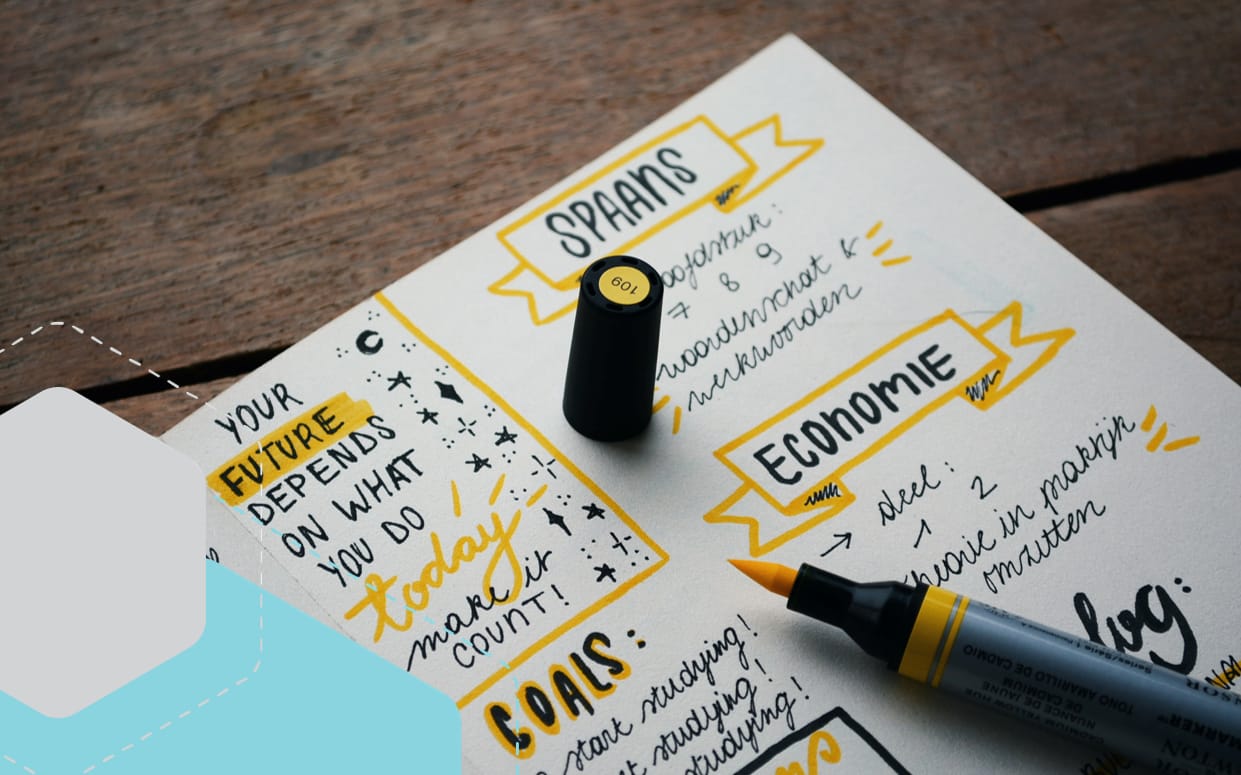 SPAANS
7 8 9
woordenschat &
werkwoorden
ECONOMIE
→ deel :
1 2
in praktijk
omzetten
YOUR
FUTURE
DEPENDS
ON WHAT
YOU DO
today
make it
COUNT!
GOALS:
start studying!
studying!
studying!
log:
109
Series/Série 1
CADMIUM YELLOW HUE
NUANCE DE JAUNE
DE CADMIUM
TONO AMARILLO DE CADMIO
MARKER™